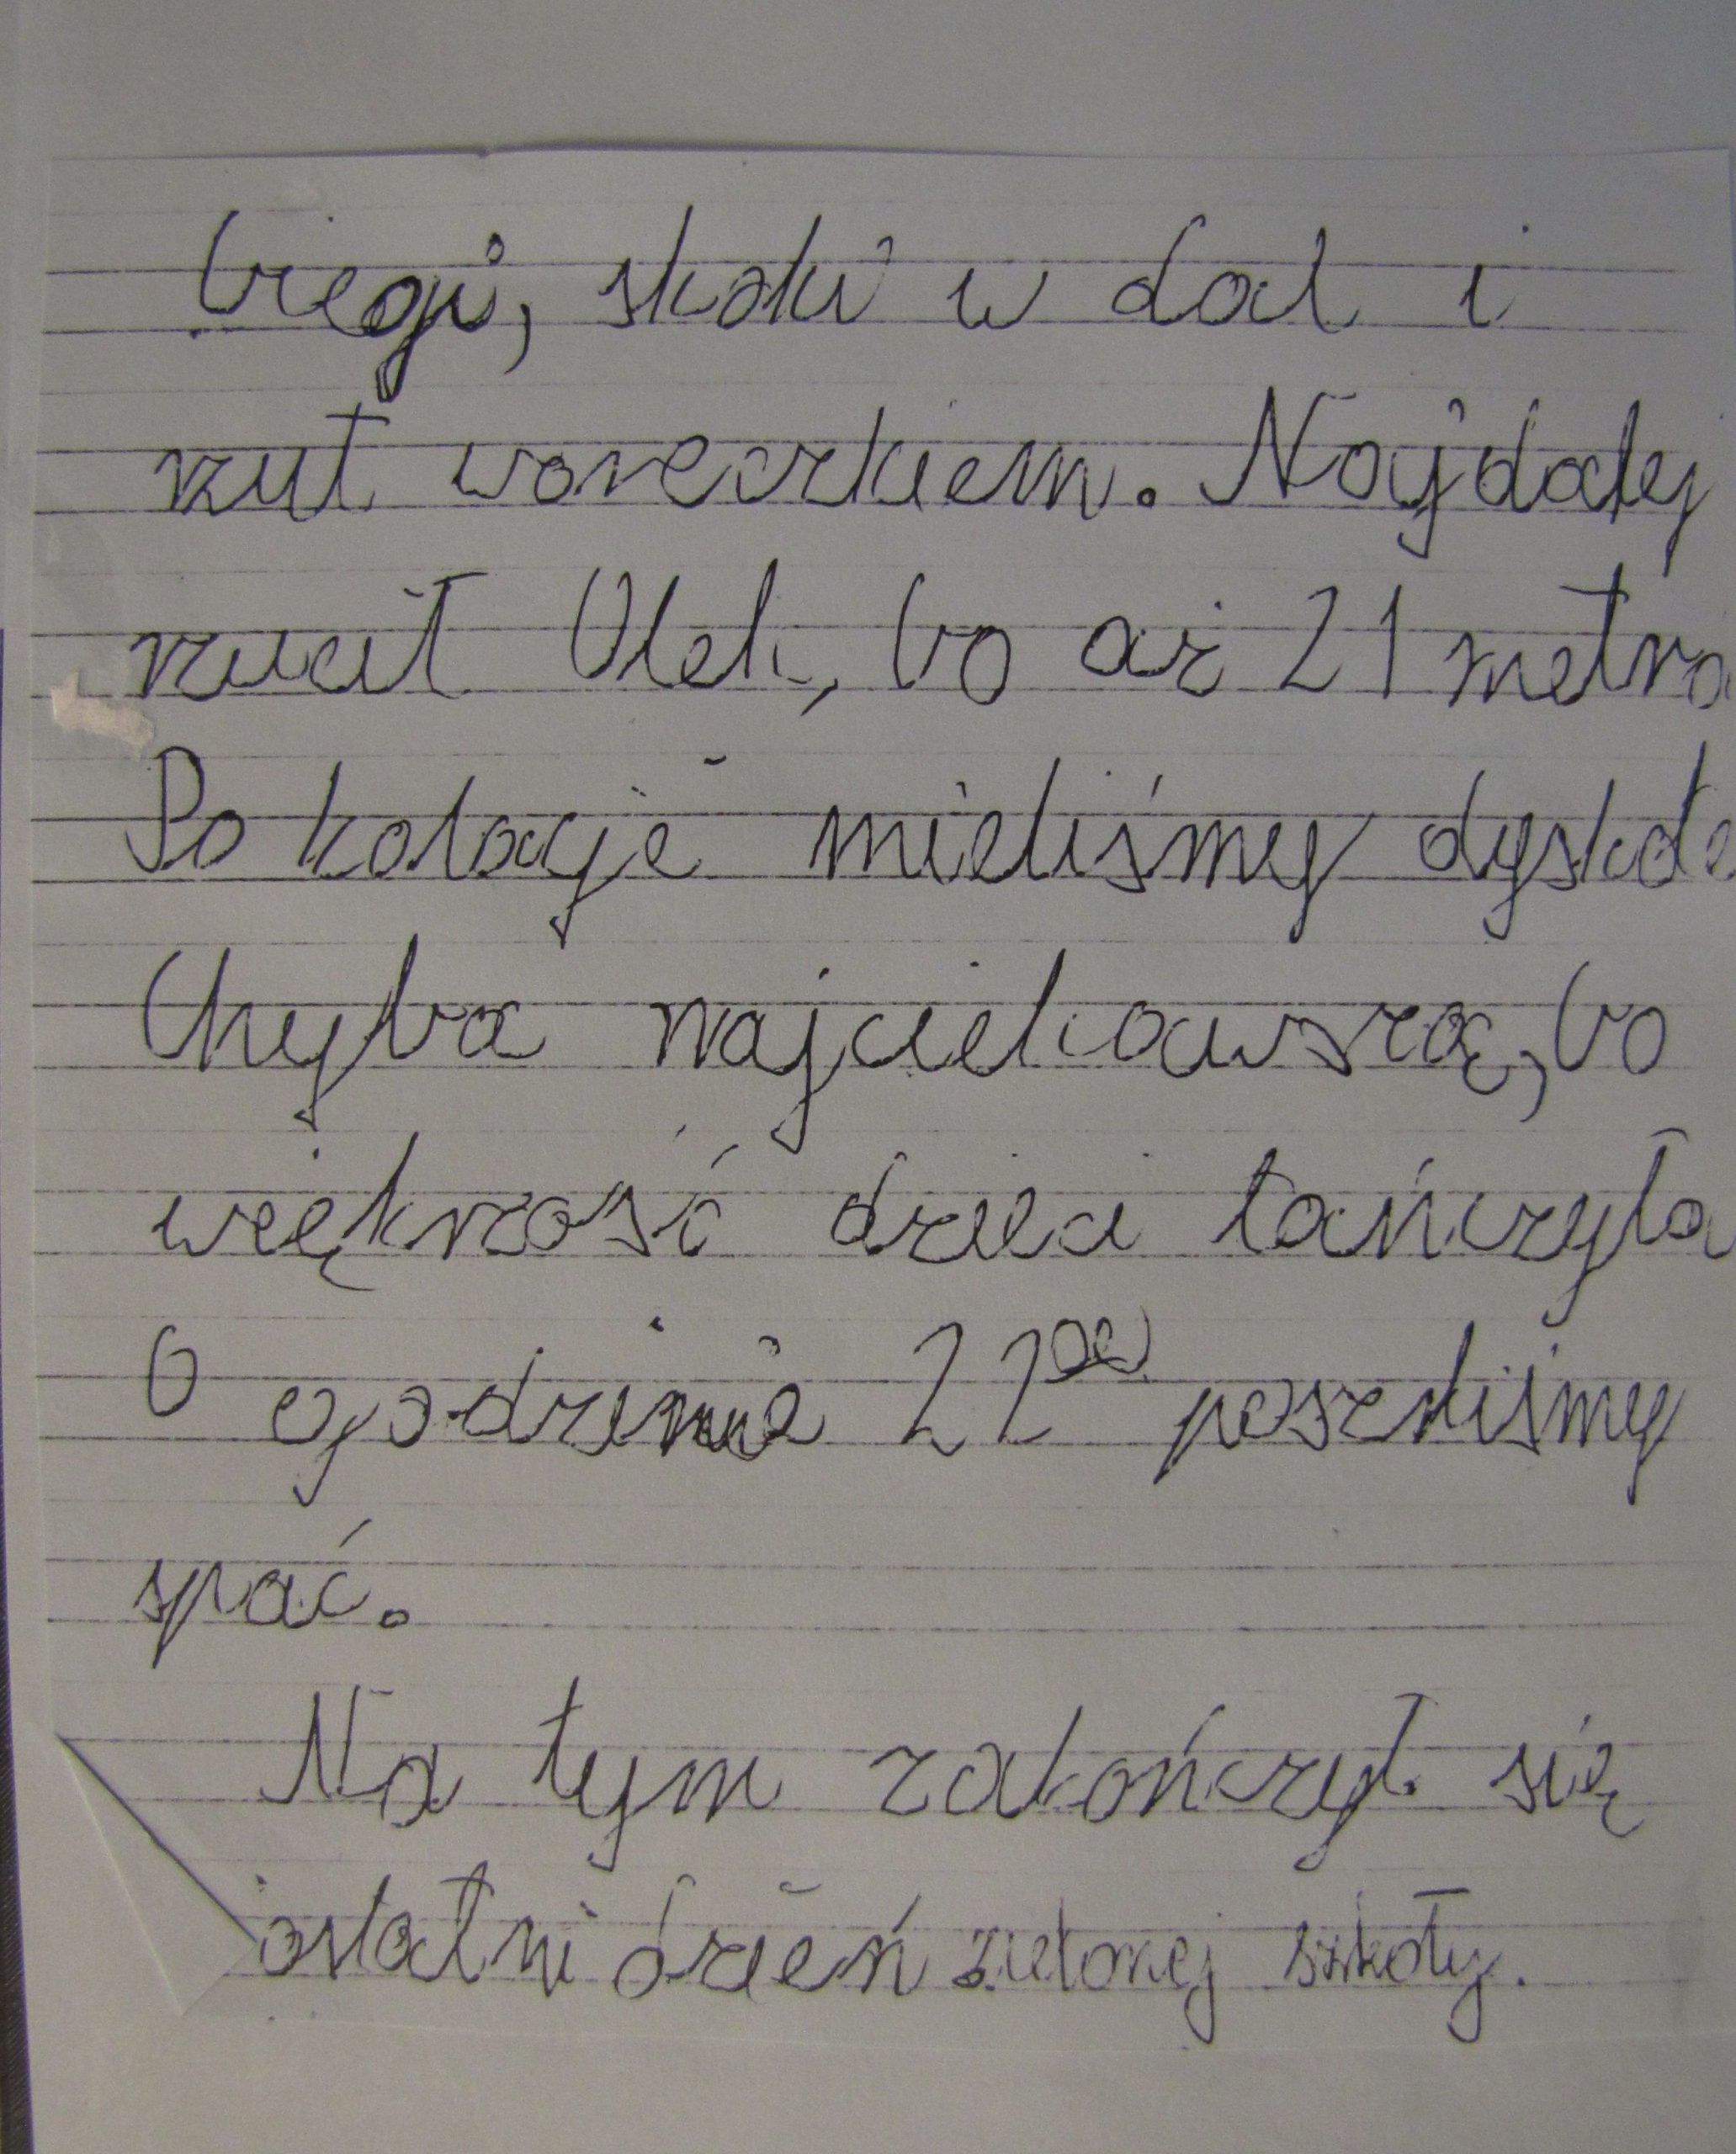 biegi, skoki w dal i
rzut woreczkiem. Najdalej
rzucił Olek, bo aż 21 metra
Po kolacje mieliśmy dyskote
Chyba najciekawszą, bo
większość dzieci tańczyła
O godzinie 22⁰⁰ poszliśmy
spać.
Na tym zakończył się
ostatni dzień zielonej szkoły.